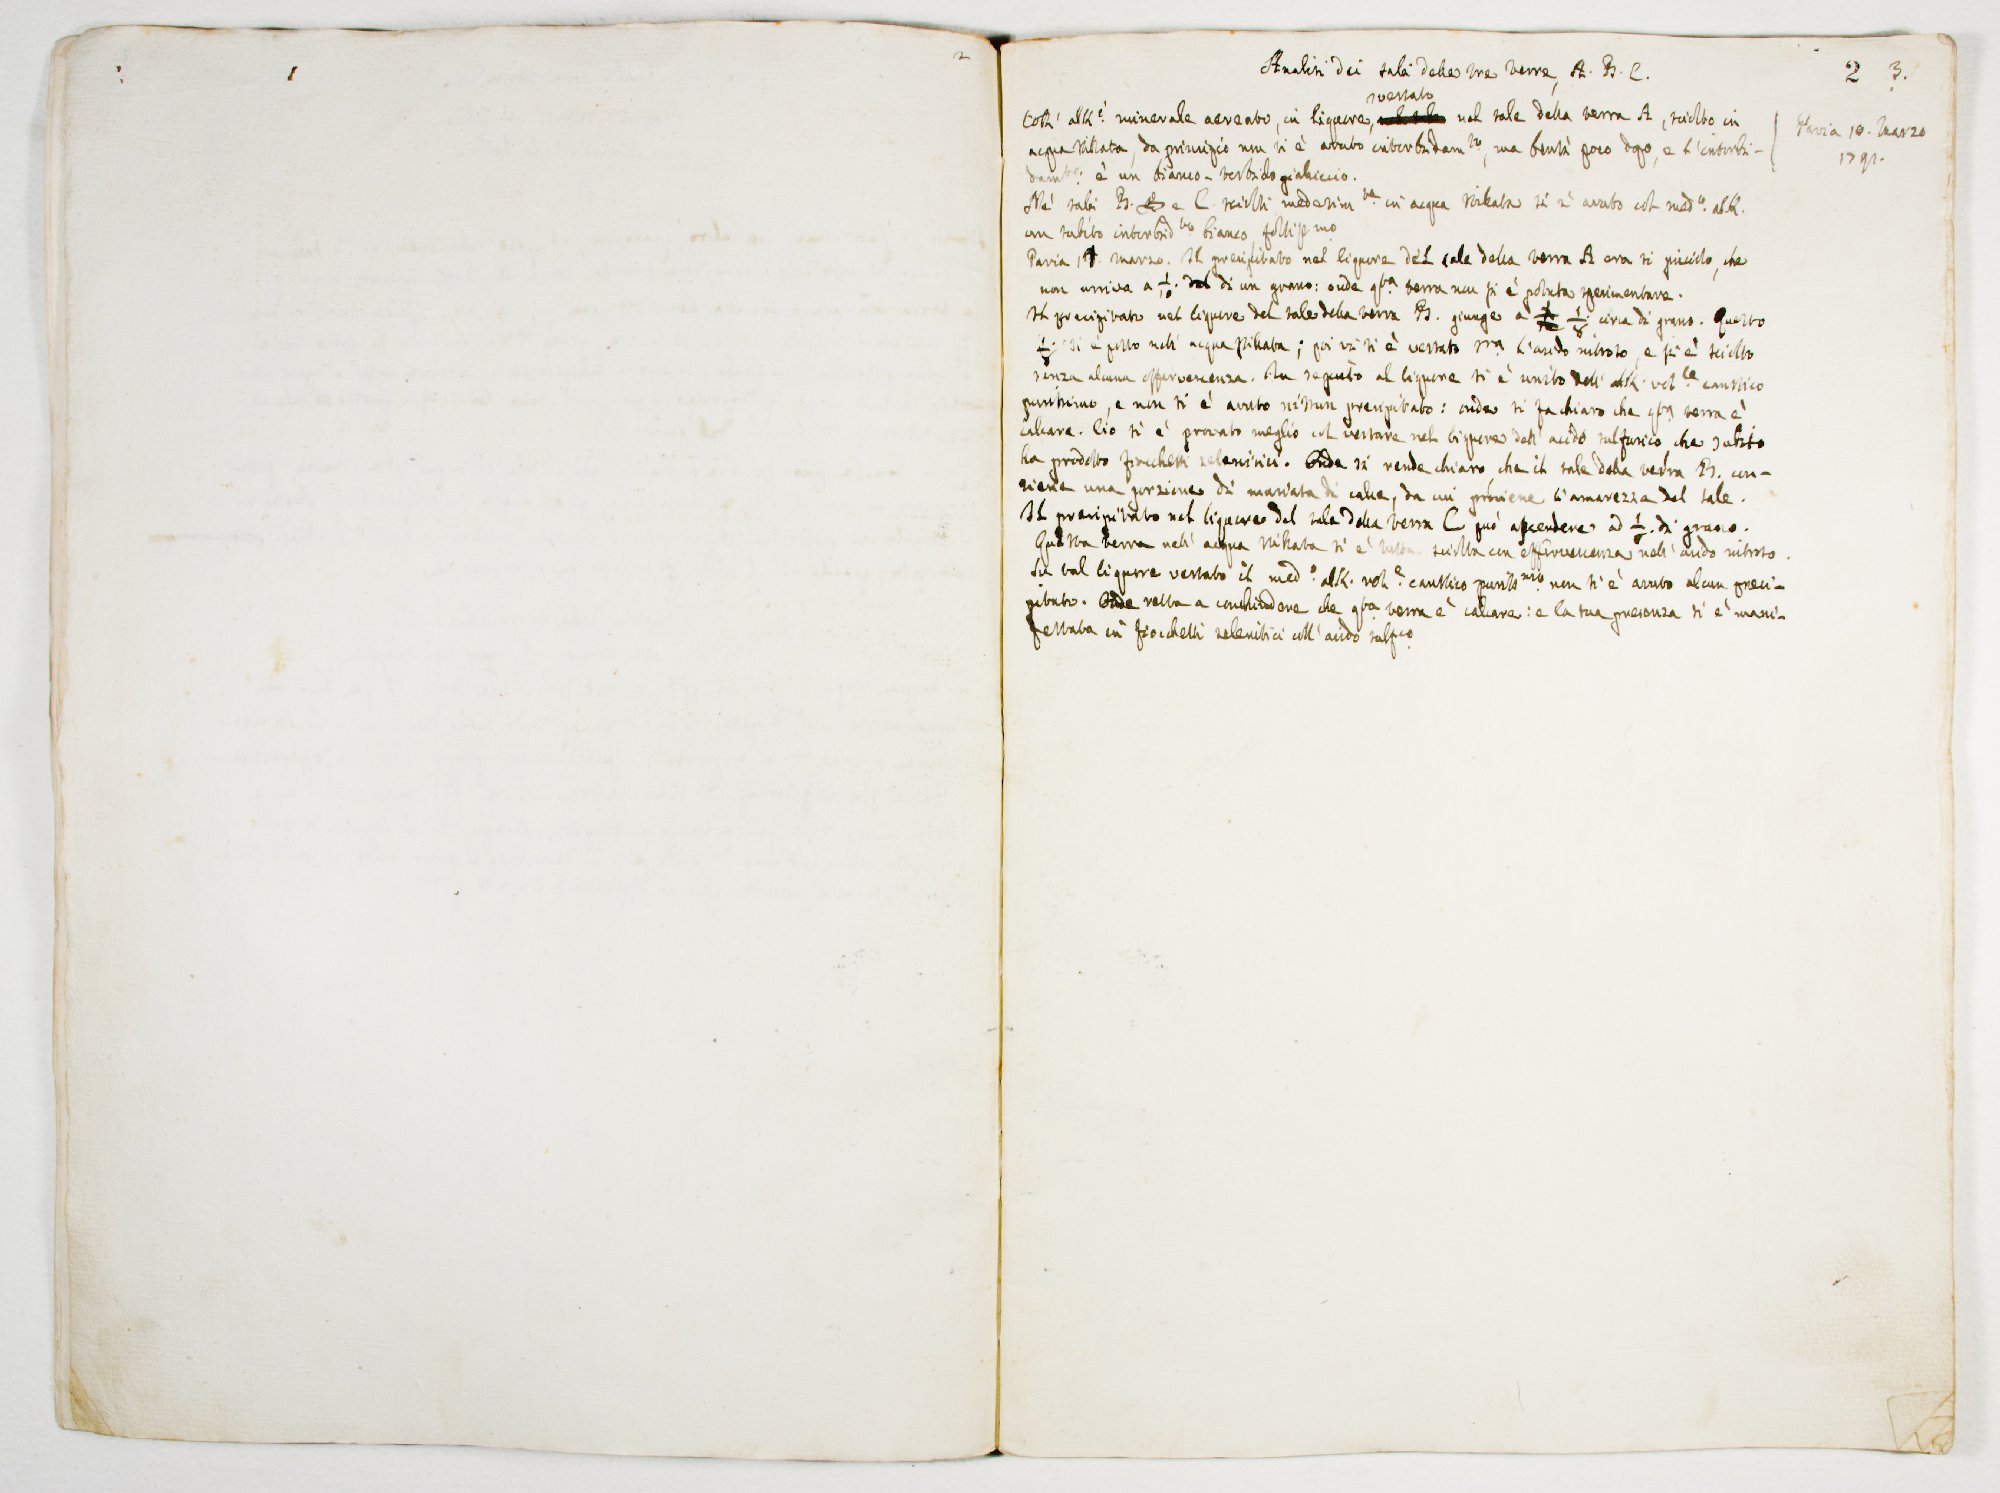 2
Analisi dei sali delle tre terre, A. B. C.
2 3.
versato
Coll' alk.ⁱ minerale aereato, in liquore, nel sale della terra A, sciolto in
acqua stillata, da principio non si è avuto intorbidam.to, ma bensì poco dopo, e l'intorbi-
dam.to è un bianco-torbido gialiccio.
Pavia 10. Marzo
1791.
Ne' sali B. e C. sciolti medesim.te in acqua stillata si è avuto col med.o alk.
un subito intorbid.to bianco foltissimo
Pavia 11. Marzo. Il precipitato nel liquore del sale della terra A era sì piccolo, che
non arriva a 1/10. di un grano: onde q.ta terra non si è potuta sperimentare.
Il precipitato nel liquore del sale della terra B. giunge a 1/8. circa di grano. Questo
1/8. si è posto nell' acqua stillata; poi vi si è versato l'acido nitroso, e si è sciolto
senza alcuna effervescenza. In seguito al liquore si è unito dell' alk. vol.le caustico
purissimo, e non si è avuto nissun precipitato: onde si fa chiaro che q.ta terra è
calcare. Ciò si è provato meglio col versare nel liquore dell' acido sulfurico che subito
ha prodotto fiocchetti selenitici. Onde si rende chiaro che il sale della terra B. con-
tiene una porzione di muriata di calce, da cui proviene l'amarezza del sale.
Il precipitato nel liquore del sale della terra C può ascendere ad di grano.
Questa terra nell' acqua stillata si è tutta sciolta con effervescenza nell' acido nitroso.
In tal liquore versato il med.o alk. vol.e caustico puriss.mo non si è avuto alcun preci-
pitato. Onde resta a conchiudere che q.ta terra è calcare: e la sua presenza si è mani-
festata in fiocchetti selenitici coll' acido sulf.co